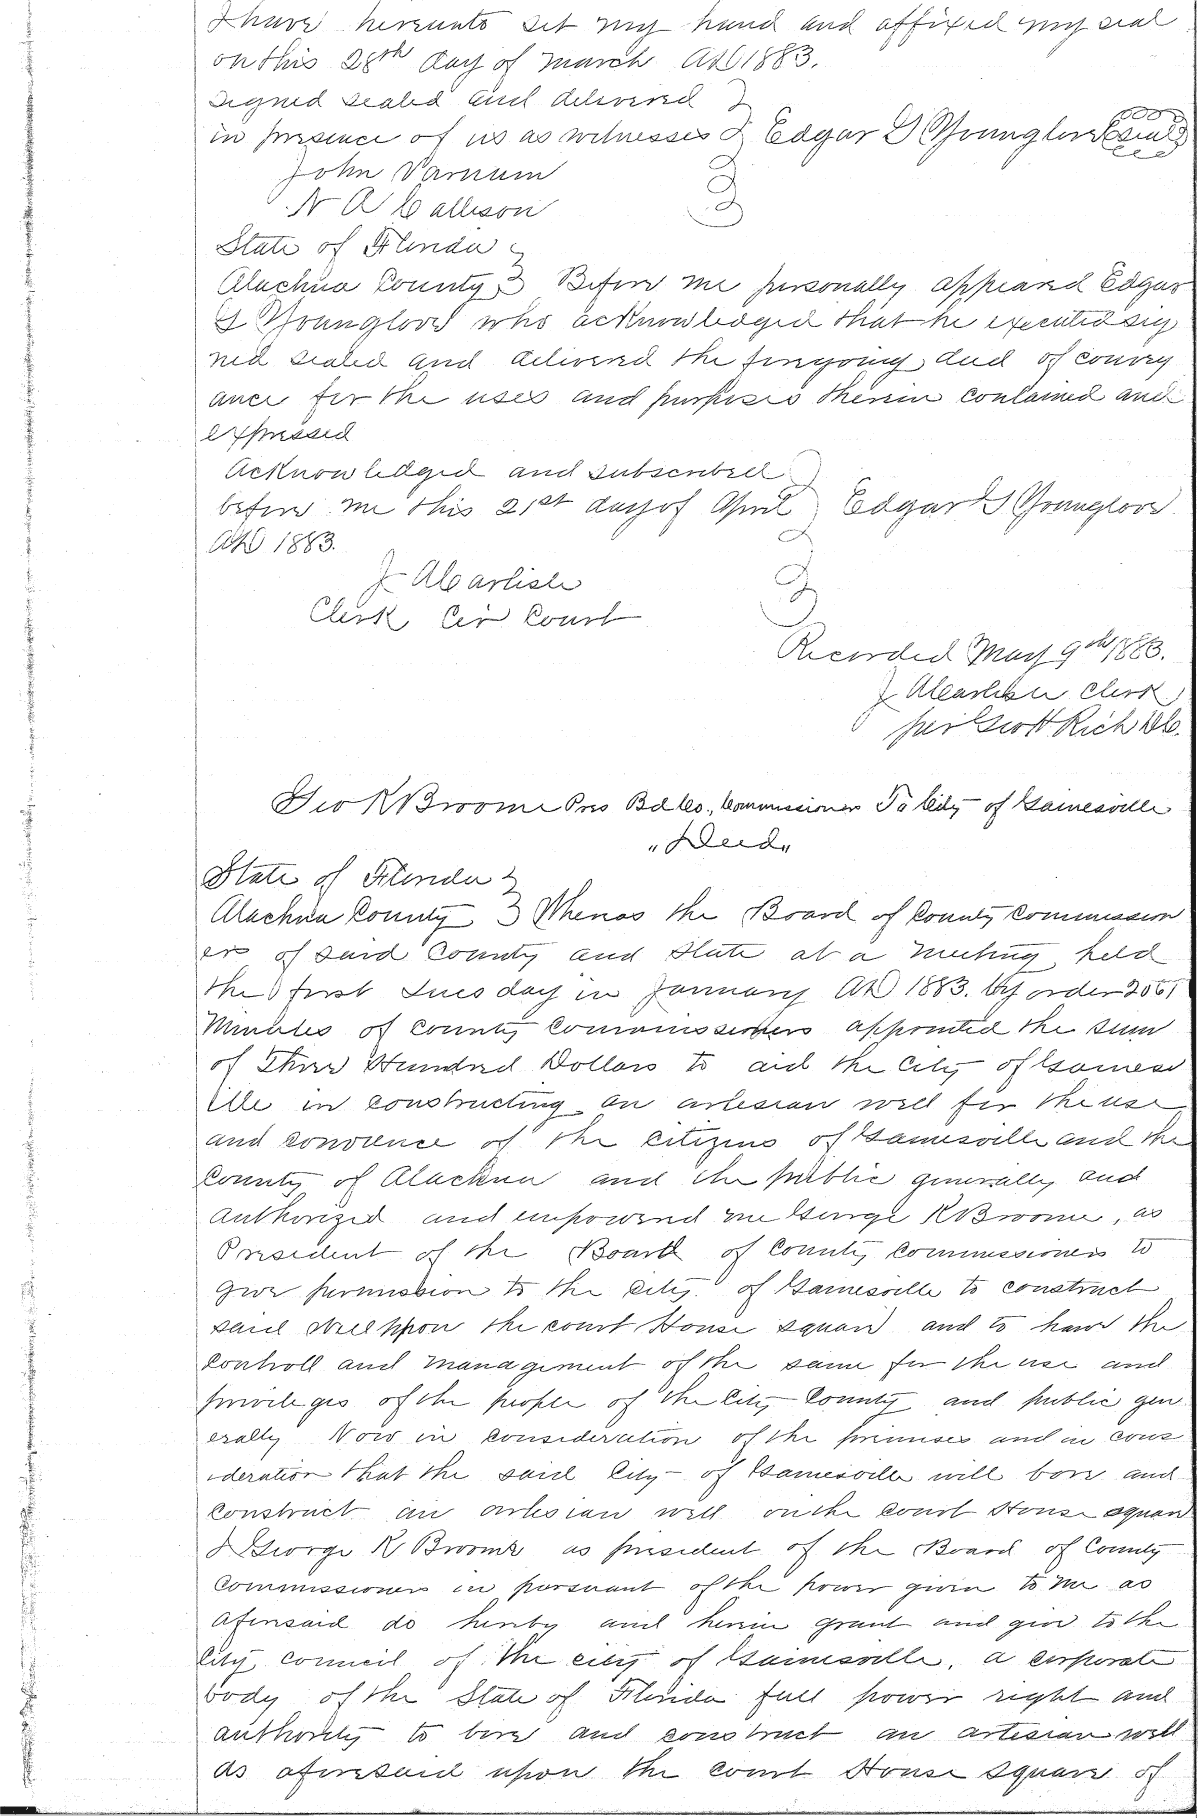 I have hereunto set my hand and affixed my seal
on this 28th day of March AD 1883.
Signed sealed and delivered
in presence of us as witnesses Edgar S Younglove seal
John Varnum
N A Callison
State of Florida
Alachua County Before me personally appeared Edgar
S Younglove who acknowledged that he executed sig
ned sealed and delivered the foregoing deed of convey
ance for the uses and purposes therein contained and
expressed
Acknowledged and subscribed
before me this 21st day of April Edgar S Younglove
AD 1883.
J A Carlisle
Clerk Cir Court
Recorded May 9th 1883.
J A Carlisle Clerk
per Scott Rich DC.
Geo K Broome Pres Bd Co., Commissioner To City of Gainesville
"Deed"
State of Florida
Alachua County Whenas the Board of County Commission
ers of said County and State at a meeting held
the first Tuesday in January AD 1883. by order
Minutes of County Commissioners appointed the sum
of Three Hundred Dollars to aid the City of Gainesv
ille in constructing an artesian well for the use
and convience of the citizens of Gainesville and the
County of Alachua and the public generally and
authorized and empowered me George K Broome, as
President of the Board of County Commissioners to
give permission to the city of Gainesville to construct
said well upon the court House square and to have the
controll and management of the same for the use and
privileges of the people of the City County and public gen
erally Now in consideration of the premises and in cons
ideration that the said City of Gainesville will bore and
construct an artesian well on the court House square
I George K Broome as president of the Board of County
Commissioners in pursuant of the power given to me as
aforesaid do hereby and herein grant and give to the
City council of the city of Gainesville, a corporate
body of the State of Florida full power right and
authority to bore and construct an artesian well
as aforesaid upon the court House square of